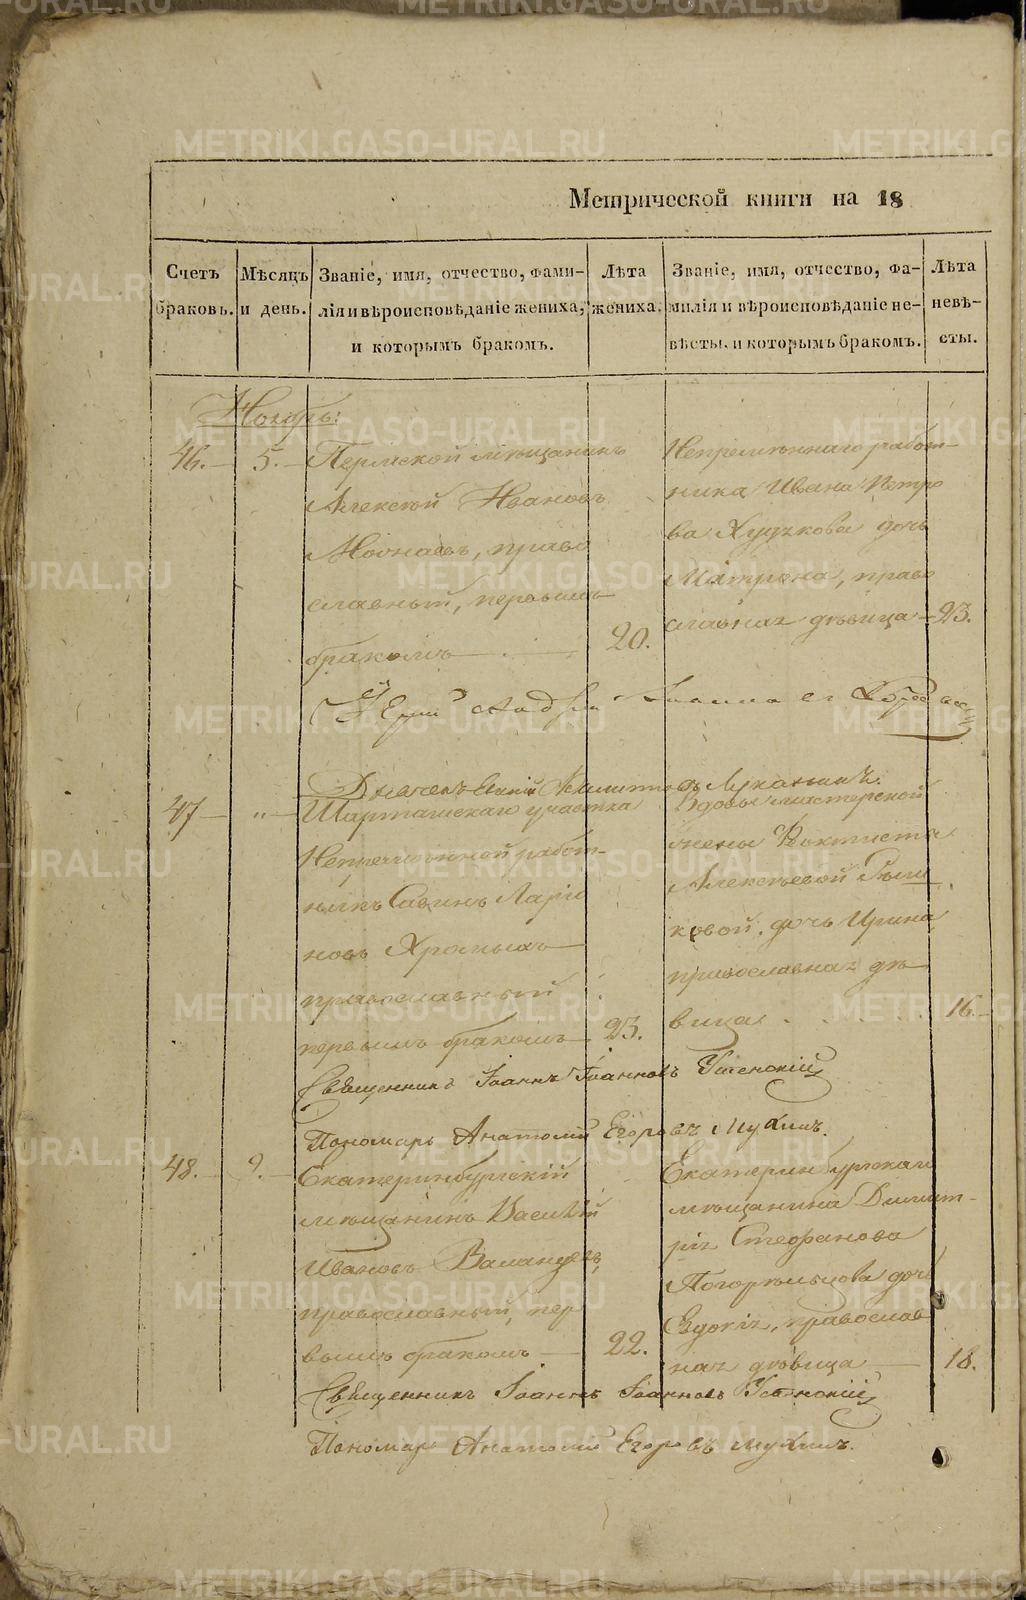 Метрической книги на 18
Счетъ браковъ.
Мѣсяцъ и день.
Званіе, имя, отчество, фами-
лія и вѣроисповѣданіе жениха,
и которымъ бракомъ.
Лѣта жениха.
Званіе, имя, отчество, фа-
милія и вѣроисповѣданіе не-
вѣсты, и которымъ бракомъ.
Лѣта невѣ-
сты.
Ноябрь:
46. 5. Пермской мѣщанинъ
Алексѣй Ивановъ
право
славный, первымъ
бракомъ 20.
Непремѣннаго работ-
ника Ивана Петро
ва дочь
Матрона, право
славная дѣвица 23.
47 „ Шарташскаго участка
Непремѣнной работ-
никъ Савинъ Ларіо
новъ Хромыхъ
православный
первымъ бракомъ 23.
Вдовы мастерской
жены Фоктисты
Алексѣевой
ковой, дочь Ирина,
православная дѣ
вица 16.
Священникъ Іоаннъ Іоанновъ Успенскій
Пономарь Анатолій Егоровъ Мухинъ.
48. 9. Екатеринбургскій
мѣщанинъ Василій
Ивановъ
православный, пер
вымъ бракомъ 22.
Екатеринбургскаго
мѣщанина Димит-
рія Стефанова
Погорѣльцова дочь
православ
ная дѣвица 18.
Священникъ Іоаннъ Іоанновъ Успенскій
Пономарь Анатолій Егоровъ Мухинъ.
METRIKI.GASO-URAL.RU